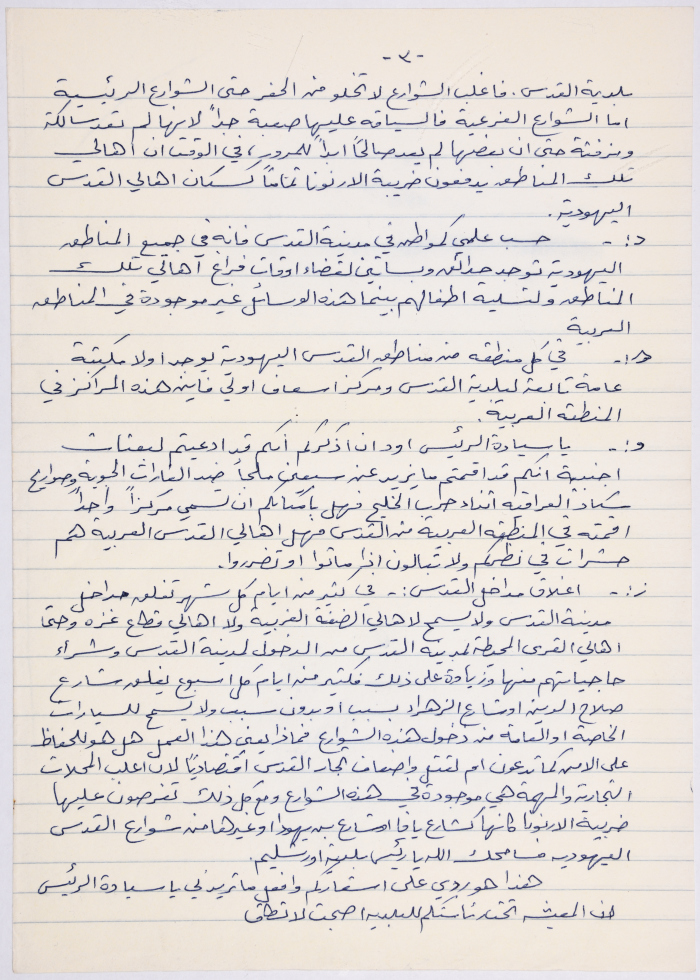 -٣-
بلدية القدس. فاغلب الشوارع لا تخلو من الحفر حتى الشوارع الرئيسية
اما الشوارع الفرعية فالسياقه عليها صعبة جداً لانها لم تعد سالكة
ومزفتة حتى ان بعضها لم يعد صالحاً ابداً للمرور، في الوقت ان اهالي
تلك المناطق يدفعون ضريبة الارنونا تماماً كسكان اهالي القدس
اليهودية.
د:- حسب علمي كمواطن في مدينة القدس فانه في جميع المناطق
اليهودية توجد حدائق وبساتين لقضاء اوقات فراغ اهالي تلك
المناطق ولتسلية اطفالهم بينما هذه الوسائل غير موجودة في المناطق
العربية
هـ:- في كل منطقه من مناطق القدس اليهودية يوجد اولا مكتبة
عامة تابعة لبلدية القدس ومركز اسعاف اولي فاين هذه المراكز في
المنطقة العربية.
و:- يا سيادة الرئيس اود ان اذكركم انكم قد ادعيتم لبعثات
اجنبية انكم قد اقمتم ما يزيد عن سبعين ملجأ ضد الغارات الجوية وصواريخ
سكاد العراقيه اثناء حرب الخليج فهل بامكانكم ان نسمي مركزاً واحداً
اقمته في المنطقه العربية من القدس فهل اهالي القدس العربية هم
حشرات في نظركم ولا تبالون اذا ماتوا او تضرروا.
ز:- اغلاق مداخل القدس:- في كثير من ايام كل شهر تغلق مداخل
مدينة القدس ولا يسمح لاهالي الضفة الغربية ولا اهالي قطاع غزه وحتى
اهالي القرى المحيطة لمدينة القدس من الدخول لمدينة القدس وشراء
حاجياتهم منها وزيادة على ذلك فكثير من ايام كل اسبوع يغلق شارع
صلاح الدين او شارع الزهراء بسبب او بدون سبب ولا يسمح للسيارات
الخاصة او العامة من دخول هذه الشوارع فماذا يعني هذا العمل هل هو للحفاظ
على الامن كما تدعون ام لقتل واضعاف تجار القدس اقتصادياً لان اغلب المحلات
التجارية والمهمة هي موجودة في هذه الشوارع ومع كل ذلك تفرضون عليها
ضريبة الارنونا كانها كشارع يافا او شارع بن يهودا وغيرها من شوارع القدس
اليهوديه فسامحك الله يا رئيس بلدية اورشليم.
هذا هو ردي على استفساركم وافعل ما تريد لي يا سيادة الرئيس
لان المعيشه تحت رئاستكم للبلديه اصبحت لا تطاق